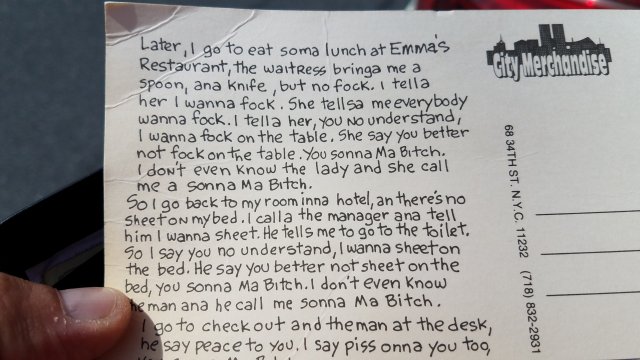 Later, I go to eat soma lunch at Emma's
Restaurant, the waitress bringa me a
spoon, ana knife, but no fock. I tella
her I wanna fock. She tellsa me everybody
wanna fock. I tella her, you no understand,
I wanna fock on the table. She say you better
not fock on the table. You sonna Ma Bitch.
I don't even know the lady and she call
me a sonna Ma Bitch.
So I go back to my room inna hotel, an there's no
sheet on my bed. I calla the manager ana tell
him I wanna sheet. He tells me to go to the toilet.
So I say you no understand, I wanna sheet on
the bed. He say you better not sheet on the
bed, you sonna Ma Bitch. I don't even know
he man ana he call me sonna Ma Bitch.
I go to check out and the man at the desk,
he say peace to you. I say piss onna you too,
City Merchandise
68 34TH ST. N.Y.C. 11232 (718) 832-2931